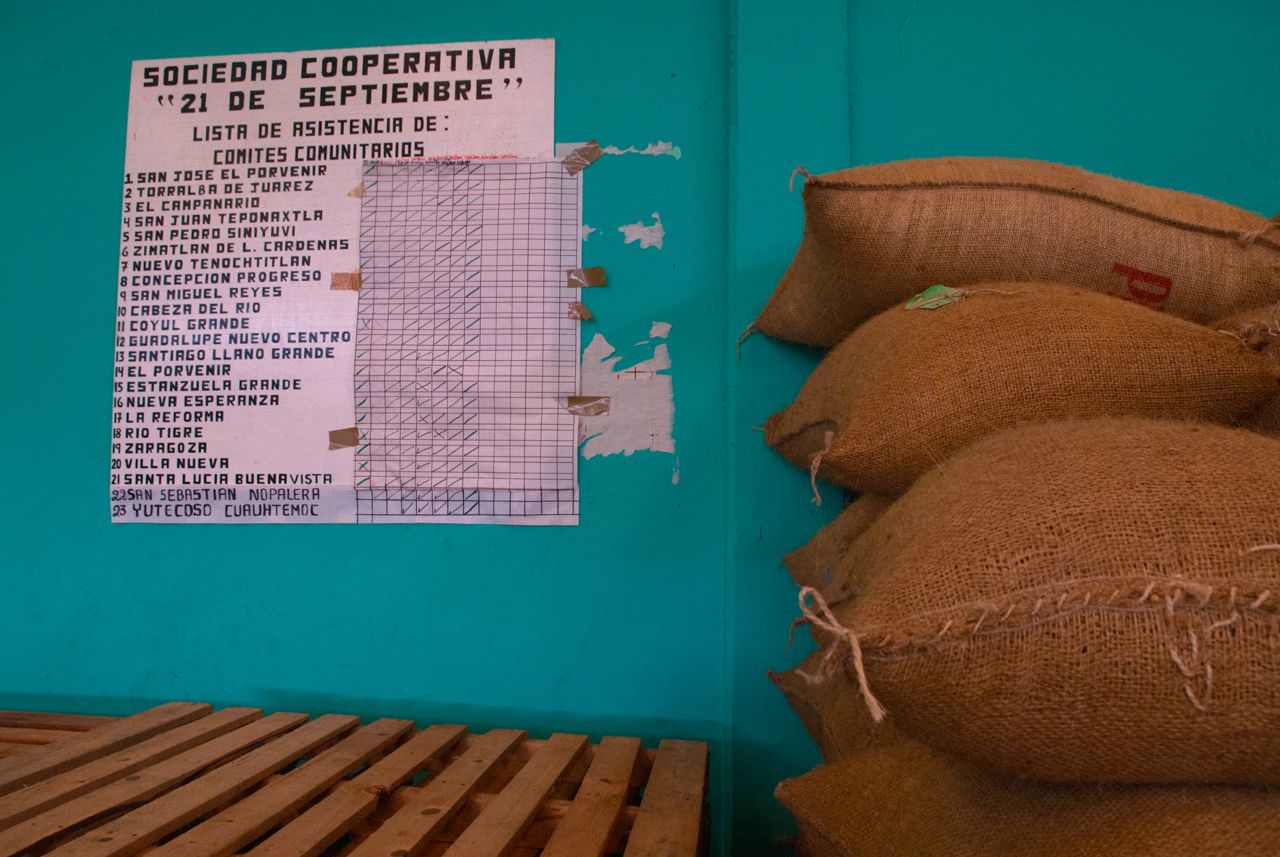 SOCIEDAD COOPERATIVA
“21 DE SEPTIEMBRE”
LISTA DE ASISTENCIA DE:
COMITES COMUNITARIOS
1 SAN JOSE EL PORVENIR
2 TORRALBA DE JUAREZ
3 EL CAMPANARIO
4 SAN JUAN TEPONAXTLA
5 SAN PEDRO SINIYUVI
6 ZIMATLAN DE L. CARDENAS
7 NUEVO TENOCHTITLAN
8 CONCEPCION PROGRESO
9 SAN MIGUEL REYES
10 CABEZA DEL RIO
11 COYUL GRANDE
12 GUADALUPE NUEVO CENTRO
13 SANTIAGO LLANO GRANDE
14 EL PORVENIR
15 ESTANZUELA GRANDE
16 NUEVA ESPERANZA
17 LA REFORMA
18 RIO TIGRE
19 ZARAGOZA
20 VILLA NUEVA
21 SANTA LUCIA BUENAVISTA
22 SAN SEBASTIAN NOPALERA
23 YUTECOSO CUAUHTEMOC